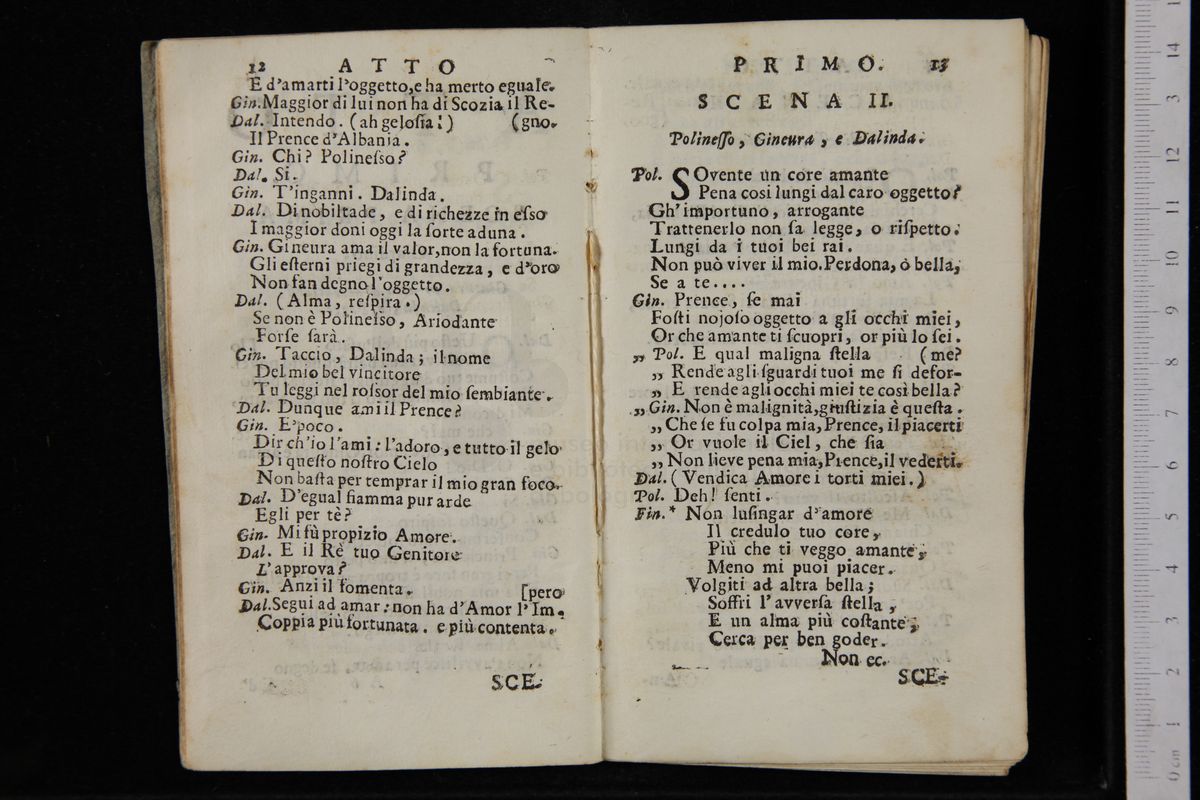 12 ATTO
E d'amarti l'oggetto,e ha merto eguale.
Gin.Maggior di lui non ha di Scozia il Re-
Dal. Intendo. (ah gelosia!) (gno.
Il Prence d'Albania.
Gin. Chi? Polinesso?
Dal. Si.
Gin. T'inganni. Dalinda.
Dal. Di nobiltade, e di richezze in esso
I maggior doni oggi la sorte aduna.
Gin. Gineura ama il valor,non la fortuna.
Gli esterni priegi di grandezza, e d'oro
Non fan degno l'oggetto.
Dal. (Alma, respira.)
Se non è Polinesso, Ariodante
Forse sarà.
Gin. Taccio, Dalinda; il nome
Del mio bel vincitore
Tu leggi nel rossor del mio sembiante.
Dal. Dunque ami il Prence?
Gin. E' poco.
Dir ch'io l'ami: l'adoro, e tutto il gelo
Di questo nostro Cielo
Non basta per temprar il mio gran foco.
Dal. D'egual fiamma pur arde
Egli per tè?
Gin. Mi fù propizio Amore.
Dal. E il Rè tuo Genitore
L'approva?
Gin. Anzi il fomenta. [pero
Dal.Segui ad amar: non ha d'Amor l'Im.
Coppia più fortunata. e più contenta.
SCE-
PRIMO. 13
SCENA II.
Polinesso, Gineura, e Dalinda.
Pol. SOvente un core amante
Pena cosi lungi dal caro oggetto?
Gh' importuno, arrogante
Trattenerlo non sa legge, o rispetto.
Lungi da i tuoi bei rai.
Non può viver il mio.Perdona, ò bella,
Se a te....
Gin. Prence, se mai
Fosti nojoso oggetto a gli occhi miei,
Or che amante ti scuopri, or più lo sei.
„ Pol. E qual maligna stella (me?
„ Rende agli sguardi tuoi me sì defor-
„ E rende agli occhi miei te così bella?
„ Gin. Non è malignità,giustizia è questa.
„ Che se fu colpa mia,Prence, il piacerti
„ Or vuole il Ciel, che sia
„ Non lieve pena mia,Prence,il vederti.
Dal. (Vendica Amore i torti miei.)
Pol. Deh! senti.
Fin.* Non lusingar d'amore
Il credulo tuo core,
Più che ti veggo amante,
Meno mi puoi piacer.
Volgiti ad altra bella;
Soffri l'avversa stella,
E un alma più costante,
Cerca per ben goder.
Non ec.
SCE-